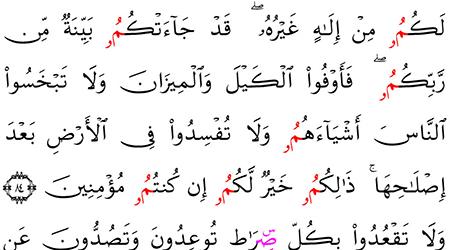 لَكُمُۥ مِنْ إِلَـٰهٍ غَيْرُهُۥۖ قَدْ جَآءَتْكُمُۥ بَيِّنَةٌ مِّن
رَّبِّكُمُۥۖ فَأَوْفُوا۟ الْكَيْلَ وَالْمِيزَانَ وَلَا تَبْخَسُوا۟
النَّاسَ أَشْيَآءَهُمُۥ وَلَا تُفْسِدُوا۟ فِى الْأَرْضِ بَعْدَ
إِصْلَـٰحِهَاۚ ذَٰلِكُمُۥ خَيْرٌ لَّكُمُۥ إِن كُنتُمُۥ مُؤْمِنِينَ ٨٤
وَلَا تَقْعُدُوا۟ بِكُلِّ صِرَٰطٍ تُوعِدُونَ وَتَصُدُّونَ عَن